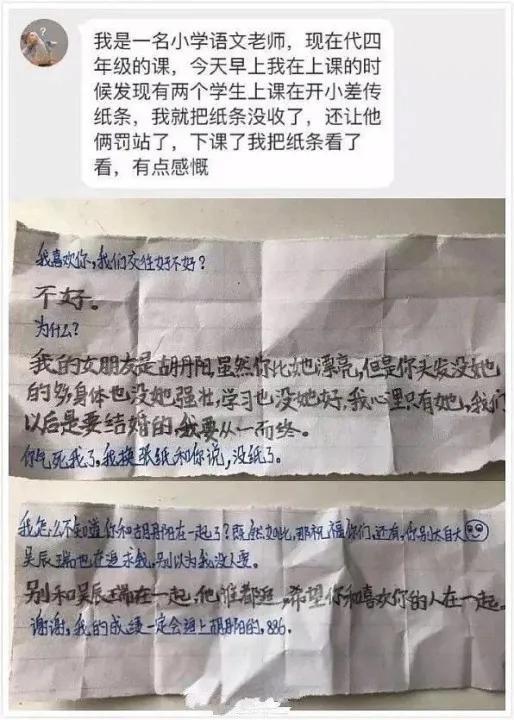 我是一名小学语文老师，现在代四
年级的课，今天早上我在上课的时
候发现有两个学生上课在开小差传
纸条，我就把纸条没收了，还让他
俩罚站了，下课了我把纸条看了
看，有点感慨
我喜欢你，我们交往好不好？
不好。
为什么？
我的女朋友是胡丹阳，虽然你比她漂亮，但是你头发没她
的多，身体也没她强壮，学习也没她好，我心里只有她，我们
以后是要结婚的，我要从一而终。
你气死我了，我换张纸和你说，没纸了。
我怎么不知道你和胡丹阳在一起了？既然如此，那祝福你们，还有，你别太自大
吴辰瑞也在追求我，别以为我没人要。
别和吴辰瑞在一起，他谁都追，希望你和喜欢你的人在一起。
谢谢，我的成绩一定会追上胡丹阳的，886.